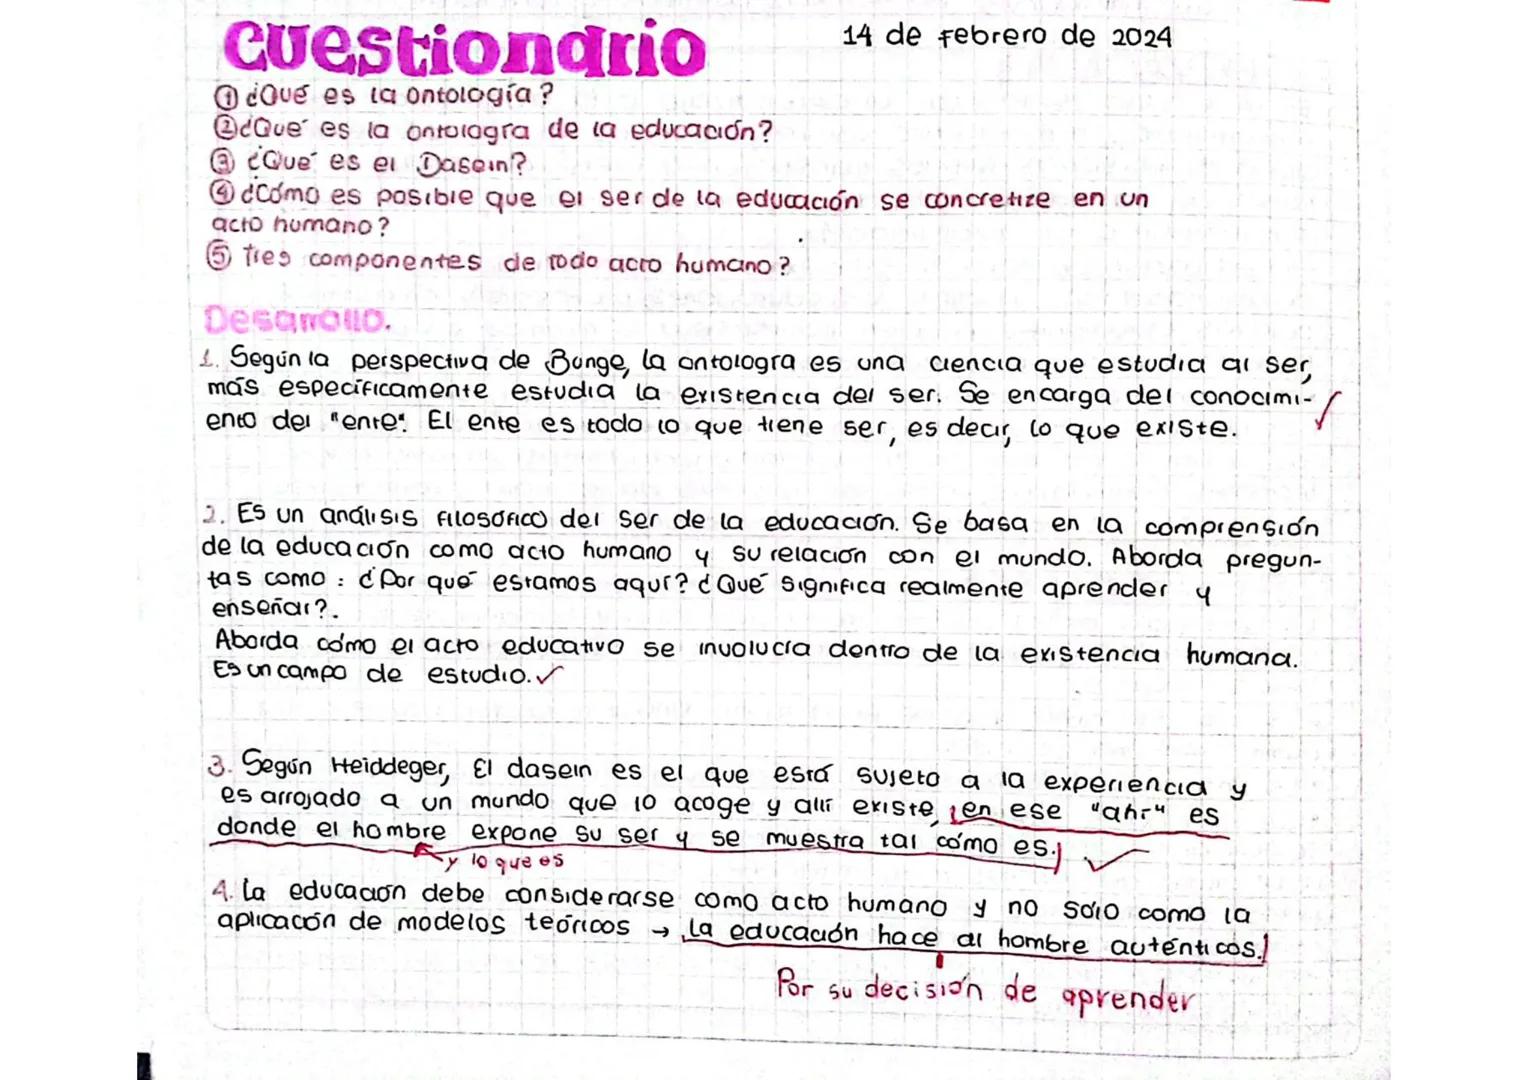 Cuestionario
14 de febrero de 2024
① ¿Qué es la ontología?
② ¿Qué es la ontología de la educación?
③ ¿Qué es el Dasein?
④ ¿Cómo es posible que el ser de la educación se concretize en un
acto humano?
⑤ Tres componentes de todo acto humano?
Desarrollo.
1. Según la perspectiva de Bunge, la ontología es una ciencia que estudia al ser,
más específicamente estudia la existencia del ser. Se encarga del conocimi-
ento del "ente". El ente es todo lo que tiene ser, es decir, lo que existe.
2. Es un análisis filosófico del ser de la educación. Se basa en la comprensión
de la educación como acto humano y su relación con el mundo. Aborda pregun-
tas como: ¿Por qué estamos aquí? ¿Qué significa realmente aprender y
enseñar?.
Aborda cómo el acto educativo se involucra dentro de la existencia humana.
Es un campo de estudio. ✓
3. Según Heiddeger, El dasein es el que está sujeto a la experiencia y
es arrojado a un mundo que lo acoge y allí existe, en ese "ahí" es
donde el hombre expone su ser y se muestra tal cómo es.
y lo que es
4. La educación debe considerarse como acto humano y no sólo como la
aplicación de modelos teóricos → La educación hace al hombre auténticos.
Por su decisión de aprender